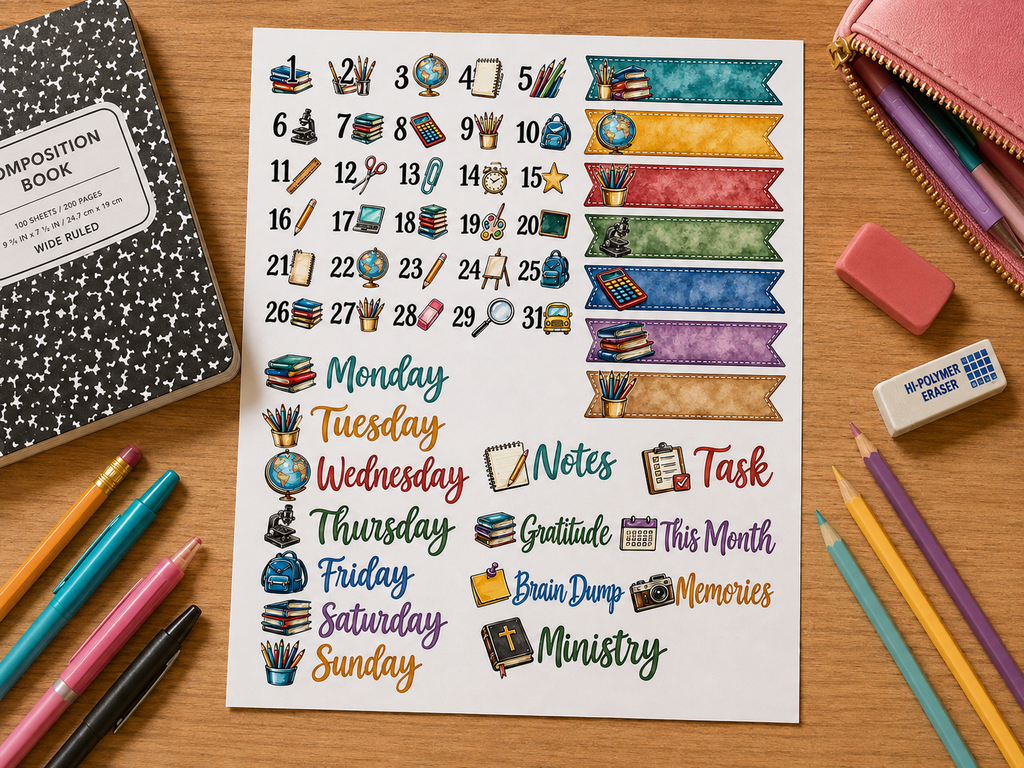 COMPOSITION
BOOK
100 SHEETS / 200 PAGES
9 ¾ IN x 7 ½ IN / 24.7 cm x 19 cm
WIDE RULED
1 2 3 4 5
6 7 8 9 10
11 12 13 14 15
16 17 18 19 20
21 22 23 24 25
26 27 28 29 31
Monday
Tuesday
Wednesday
Thursday
Friday
Saturday
Sunday
Notes
Task
Gratitude
This Month
Brain Dump
Memories
Ministry
HI-POLYMER
ERASER